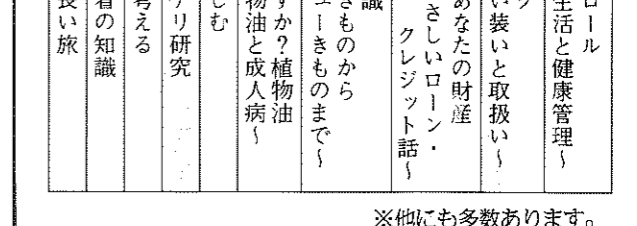 ロール
生活と健康管理~
い装いと取扱い~
あなたの財産
さしいローン・
クレジット話~
識
きものから
ューきものまで~
すか?植物油
物油と成人病~
しむ
テリ研究
考える
着の知識
長い旅
※他にも多数あります。